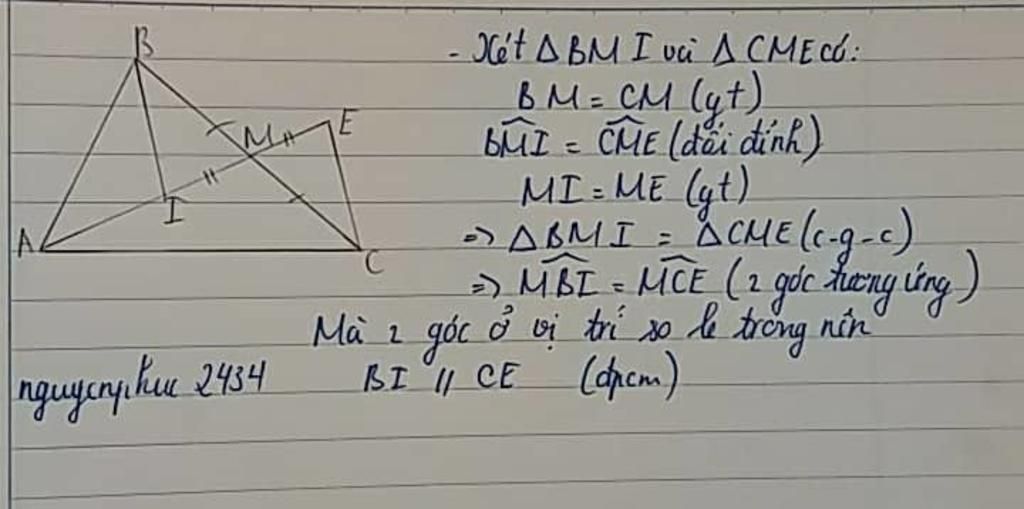 B
E
M
I
A
C
- Xét Δ BMI và Δ CME có:
BM = CM (gt)
B͡MI = C͡ME (đối đỉnh)
MI = ME (gt)
=> Δ BMI = Δ CME (c-g-c)
=> M͡BI = M͡CE (2 góc tương ứng)
Mà 2 góc ở vị trí so le trong nên
2434 BI // CE (đpcm)